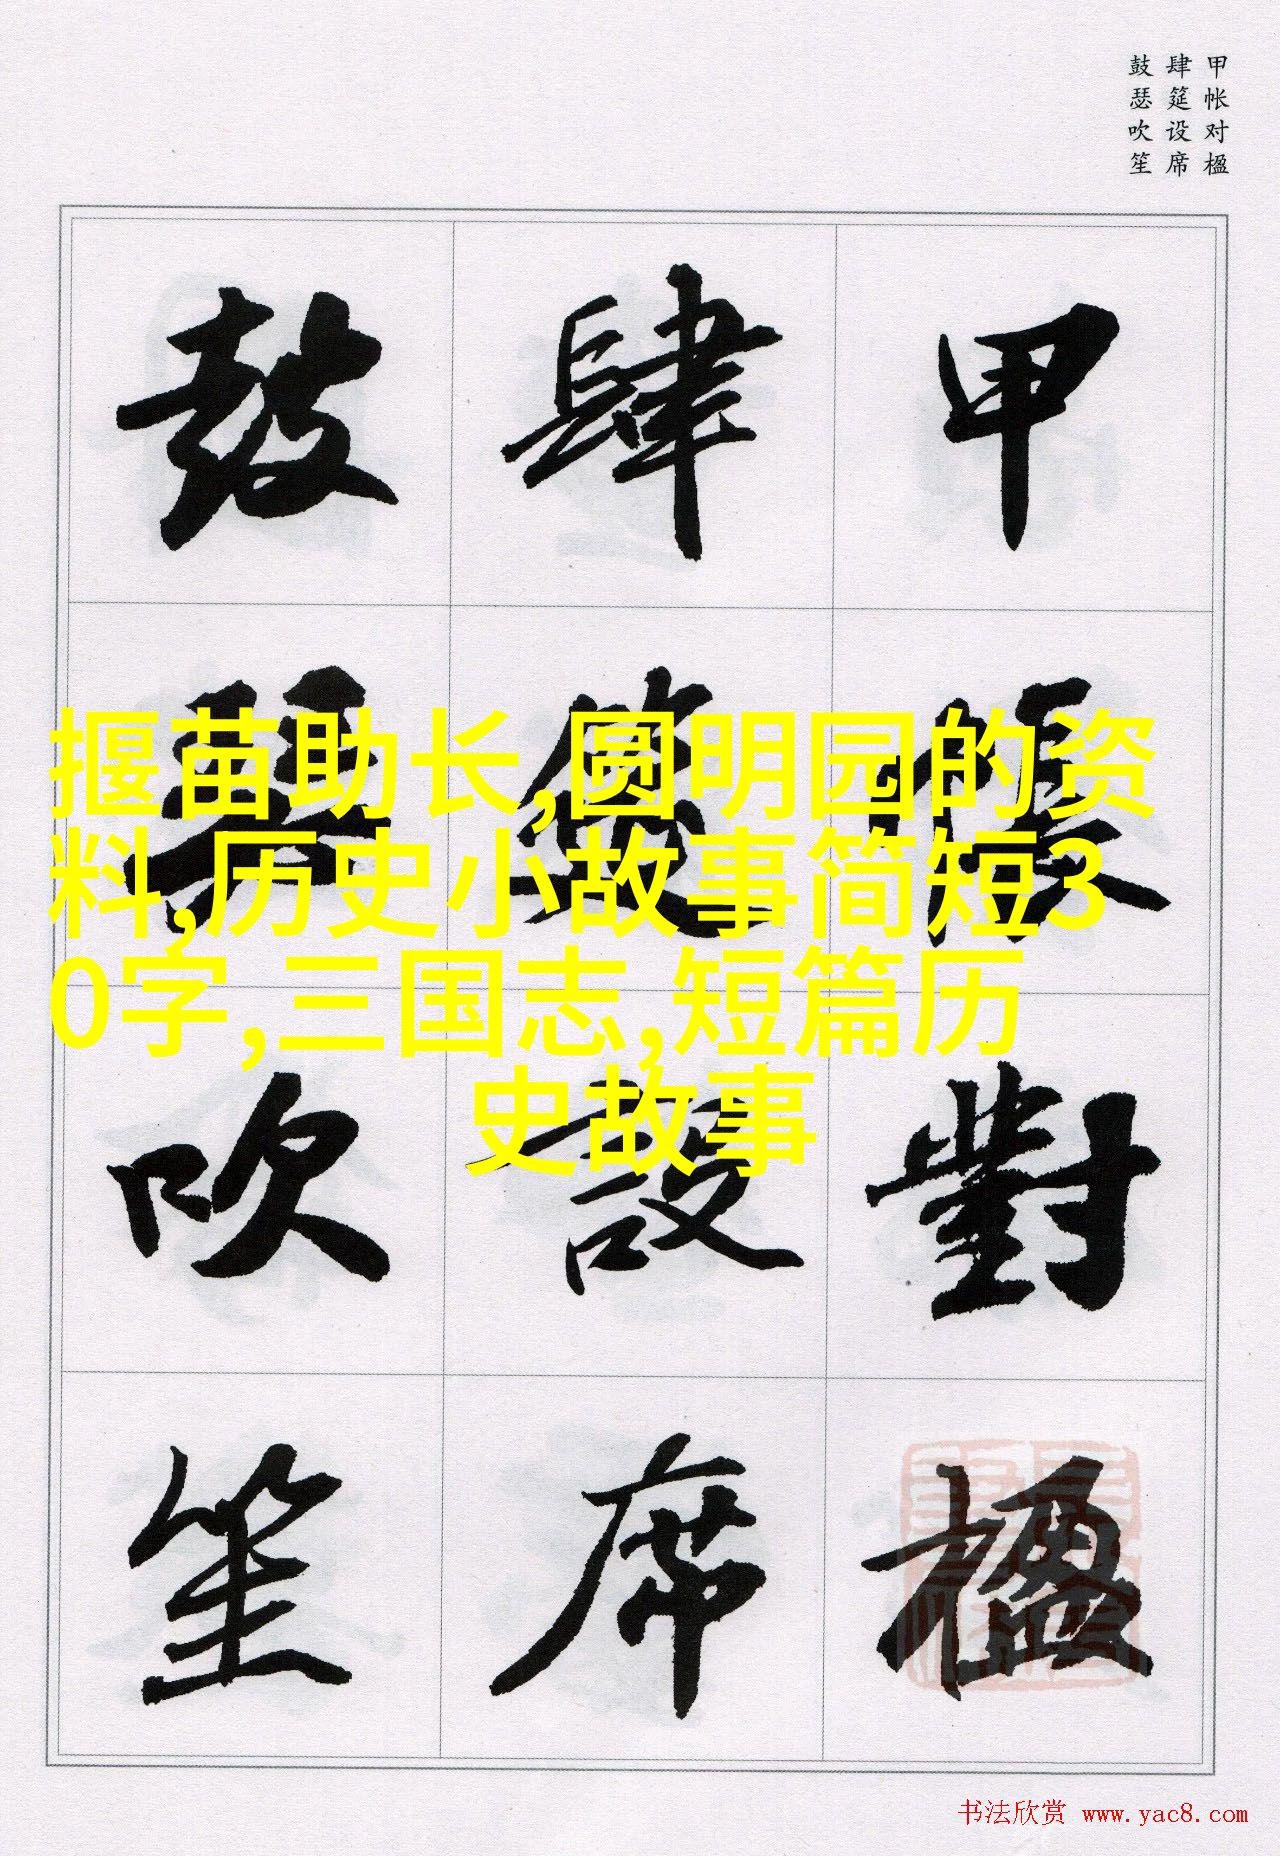 甲帐对楹
肆筵设席
鼓瑟吹笙
甲帳對楹
肆筵設席
鼓瑟吹笙
揠苗助长,圆明园的资
料,历史小故事简短3
0字,三国志,短篇历
史故事
书法欣赏 www.yac8.com